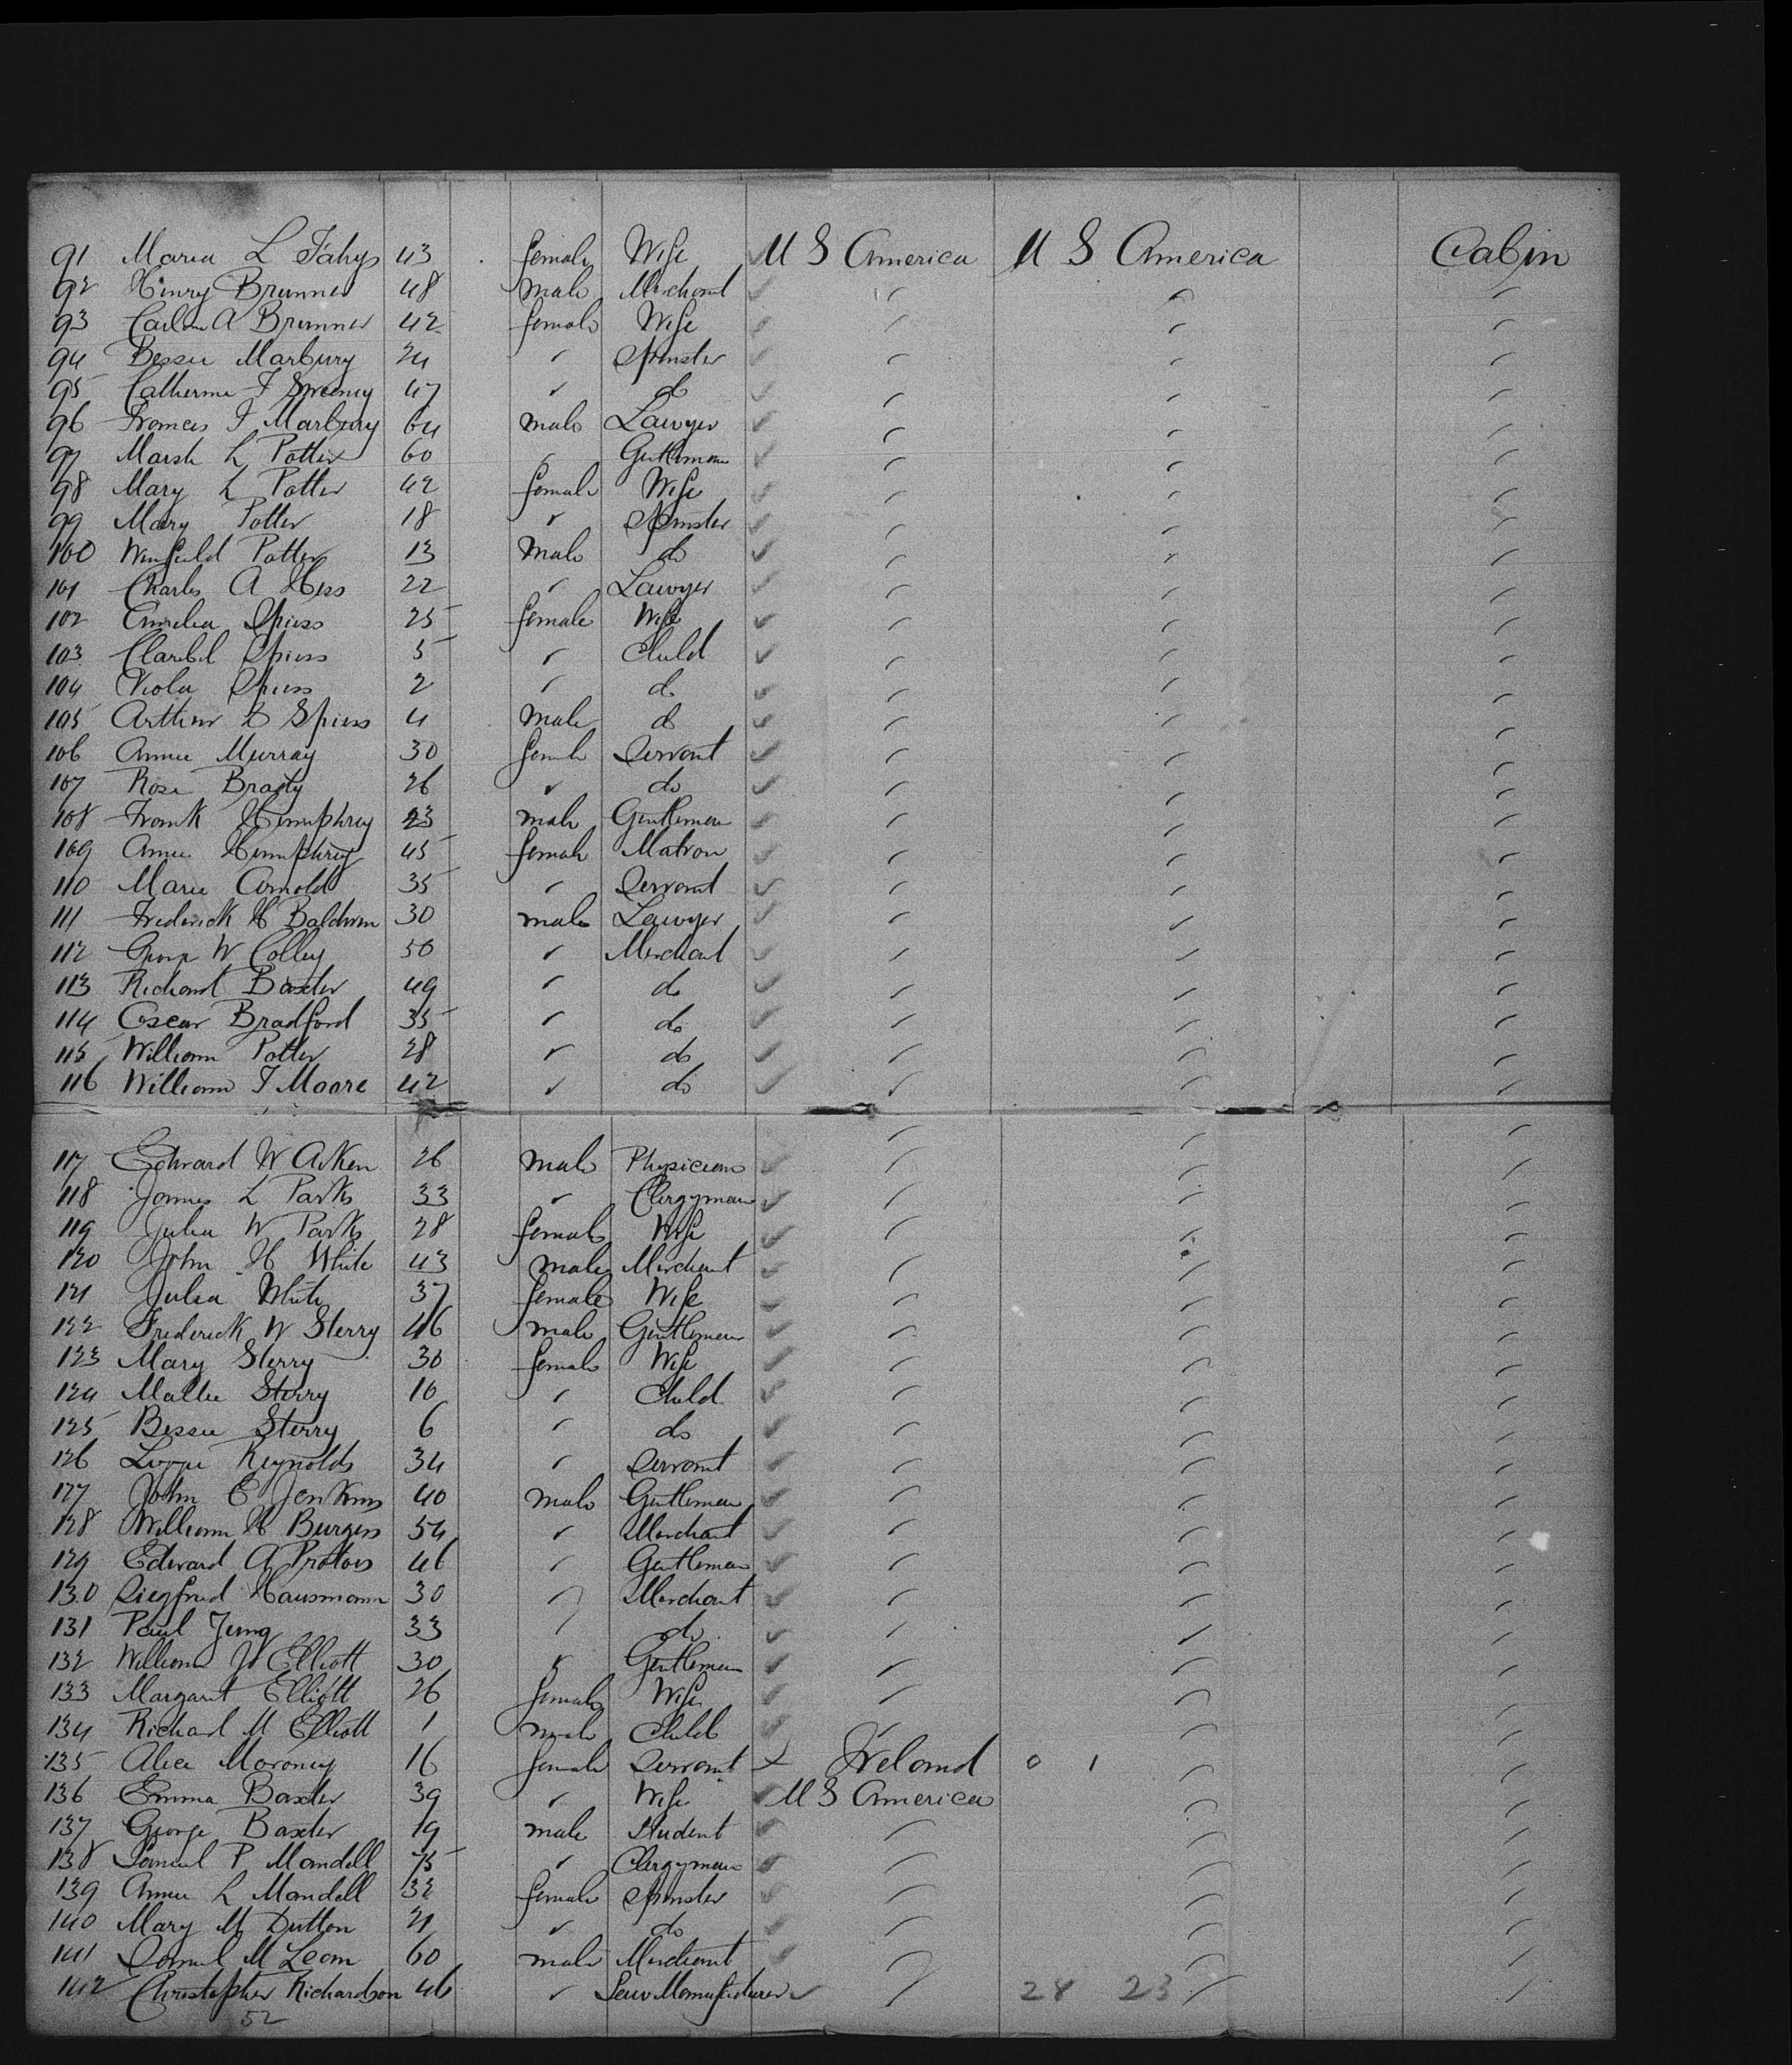 91 Maria L Fahys 43 female Wife U S America U S America Cabin
92 Henry Brunner 48 male Merchant
93 A Brunner 42 female Wife
94 Bessie Marbury 24 " Spinster
95 Catherine F Sweeney 47 " do
96 Francis F Marbury 64 male Lawyer
97 Marsh L Potter 60 " Gentleman
98 Mary L Potter 42 female Wife
99 Mary Potter 18 " Spinster
100 Winfield Potter 13 Male do
101 Charles A Hess 22 " Lawyer
102 Amelia Spiess 25 female Wife
103 Claribel Spiess 5 " Child
104 Viola Spiess 2 " do
105 Arthur B Spiess 4 Male do
106 Annie Murray 30 female Servant
107 Rose Brady 26 " do
108 Frank Humphrey 23 male Gentleman
109 Annie Humphrey 45 female Matron
110 Marie Arnold 35 " Servant
111 Frederick H Baldwin 30 male Lawyer
112 George W Colley 50 " Merchant
113 Richard Baxter 49 " do
114 Oscar Bradford 35 " do
115 William Potter 28 " do
116 William F Moore 42 " do
117 Edward W Aiken 26 male Physician
118 James L Parks 33 " Clergyman
119 Julia W Parks 28 female Wife
120 John H White 43 male Merchant
121 Julia White 37 female Wife
122 Frederick W Sterry 46 male Gentleman
123 Mary Sterry 36 female Wife
124 Mallie Sterry 10 " Child
125 Bessie Sterry 6 " do
126 Lizzie Reynolds 34 " Servant
127 John E Jenkins 40 male Gentleman
128 William H Burgess 54 " Merchant
129 Edward A 46 " Gentleman
130 Siegfried Hausmann 30 " Merchant
131 Paul Jung 33 " do
132 William Elliott 30 " Gentleman
133 Margaret Elliott 26 female Wife
134 Richard M Elliott 1 male Child
135 Alice Moroney 16 female Servant + Ireland 0 1
136 Emma Baxter 39 " Wife U S America
137 George Baxter 19 male Student
138 Samuel P Mandell 75 " Clergyman
139 Annie L Mandell 32 female Spinster
140 Mary M Dutton 21 " do
141 Daniel M Lean 60 male Merchant
142 Christopher Richardson 46 " Manufacturer 28 23
52